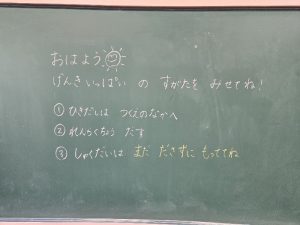 おはよう
げんきいっぱい の すがたを みせてね!
① ひきだしは つくえのなかへ
② れんらくちょう だす
③ しゅくだいは まだ ださずに もっててね